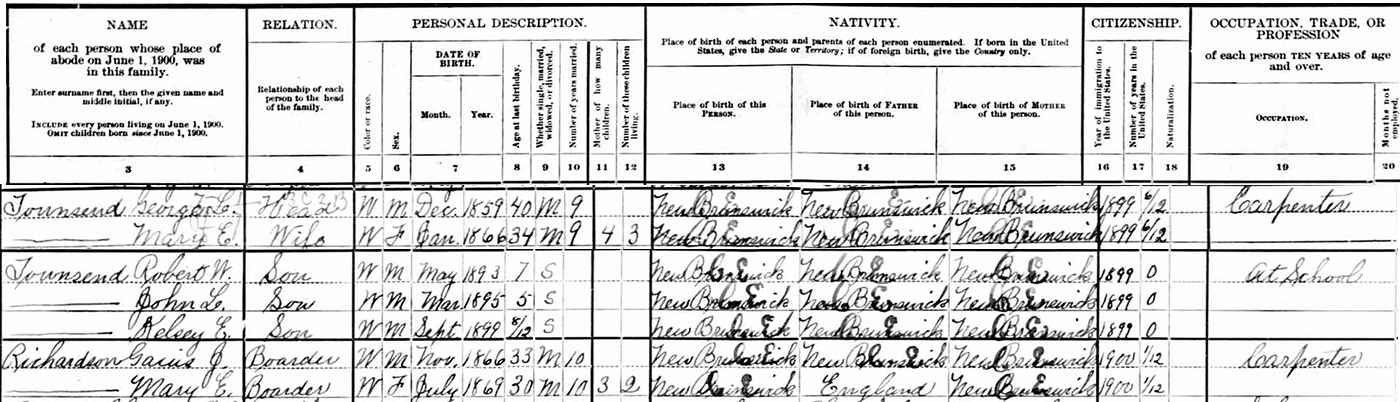 NAME
of each person whose place of
abode on June 1, 1900, was
in this family.
Enter surname first, then the given name and
middle initial, if any.
INCLUDE every person living on June 1, 1900.
OMIT children born since June 1, 1900.
RELATION.
Relationship of each
person to the head
of the family.
PERSONAL DESCRIPTION.
Color or race.
Sex.
DATE OF
BIRTH.
Month. Year.
Age at last birthday.
Whether single, married,
widowed, or divorced.
Number of years married.
Mother of how many
children.
Number of these children
living.
NATIVITY.
Place of birth of each person and parents of each person enumerated. If born in the United
States, give the State or Territory; if of foreign birth, give the Country only.
Place of birth of this
PERSON.
Place of birth of FATHER
of this person.
Place of birth of MOTHER
of this person.
CITIZENSHIP.
Year of immigration to
the United States.
Number of years in the
United States.
Naturalization.
OCCUPATION, TRADE, OR
PROFESSION
of each person TEN YEARS of age
and over.
OCCUPATION.
Months not
employed.
3 4 5 6 7 8 9 10 11 12 13 14 15 16 17 18 19 20
Townsend George L. Head W M Dec. 1859 40 M 9 New Brunswick New Brunswick New Brunswick 1899 6/12 Carpenter
—— Mary E. Wife W F Jan. 1866 34 M 9 4 3 New Brunswick New Brunswick New Brunswick 1899 6/12
Townsend Robert W. Son W M May 1893 7 S New Brunswick New Brunswick New Brunswick 1899 0 At School
—— John L. Son W M Mar. 1895 5 S New Brunswick New Brunswick New Brunswick 1899 0
—— Kelsey E. Son W M Sept. 1899 8/12 S New Brunswick New Brunswick New Brunswick 1899 0
Richardson Gaius J. Boarder W M Nov. 1866 33 M 10 New Brunswick New Brunswick New Brunswick 1900 1/12 Carpenter
—— Mary E. Boarder W F July 1869 30 M 10 3 2 New Brunswick England New Brunswick 1900 1/12